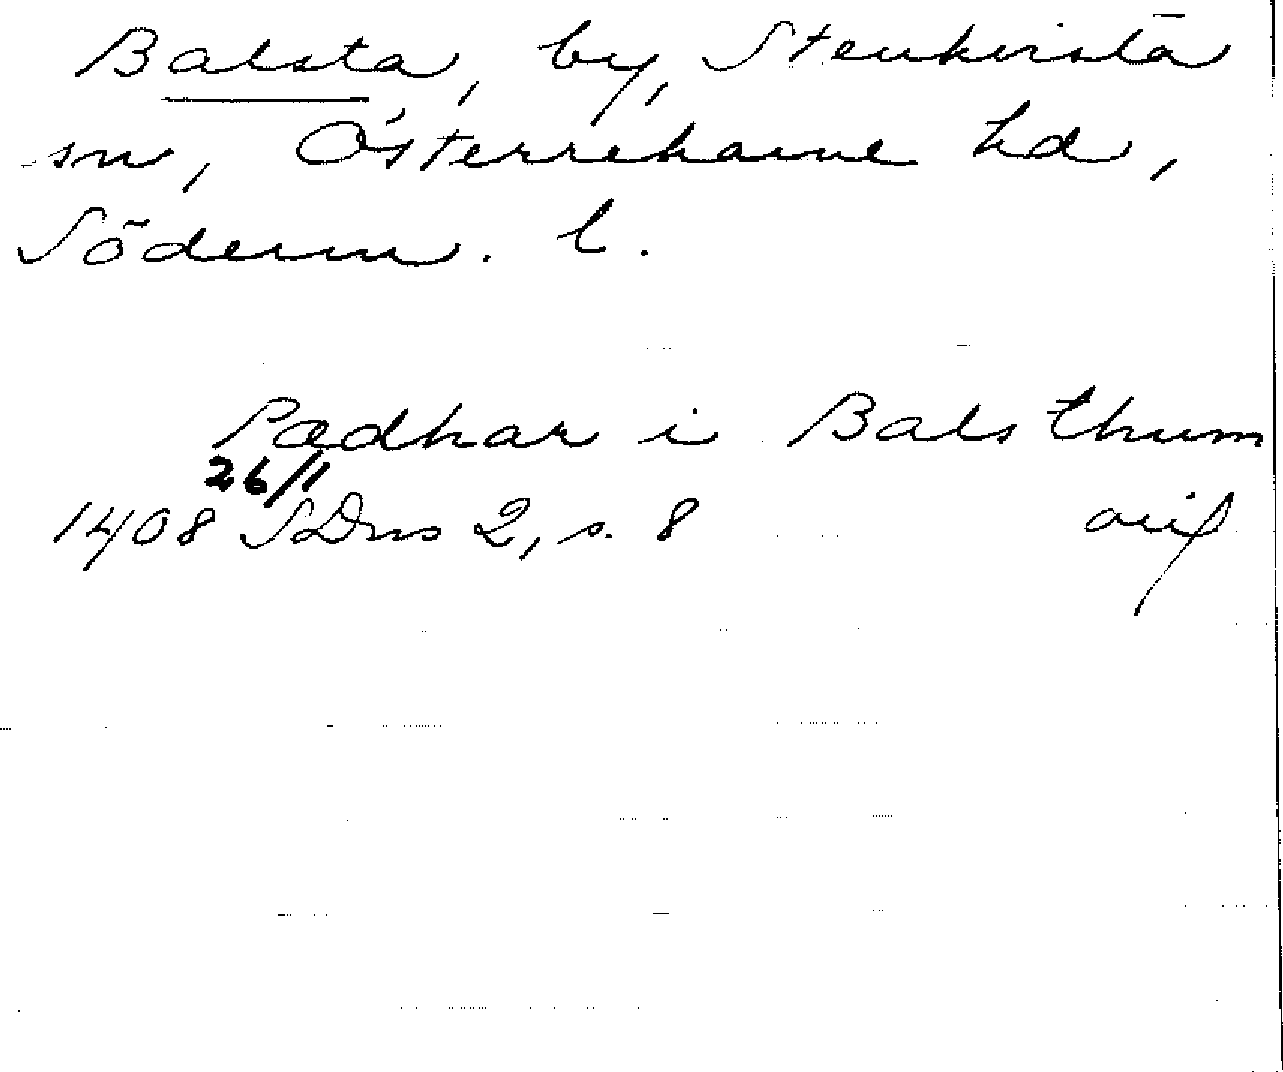 Balsta, by, Stenkvista
sn, Österrekarne hd,
Söderm. l.
Pædhar i Balsthum
26/1
1408 SDns 2, s. 8 orig